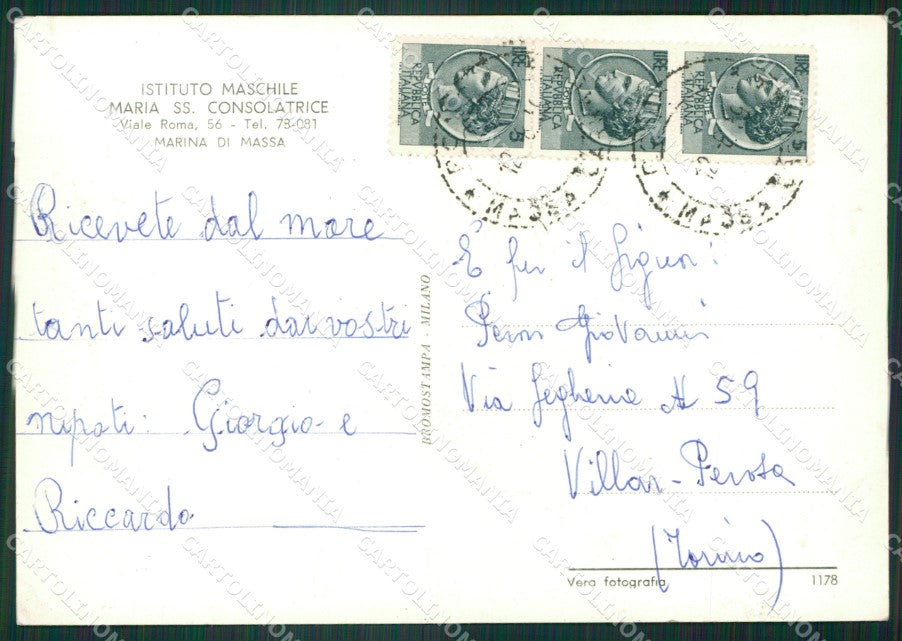 ISTITUTO MASCHILE
MARIA SS. CONSOLATRICE
Viale Roma, 56 - Tel. 73-081
MARINA DI MASSA
Ricevete dal mare
tanti saluti dai vostri
nipoti: Giorgio e
Riccardo
PROMOSTAMPA - MILANO
LIRE 5
REPVBBLICA
ITALIANA
LIRE 5
REPVBBLICA
ITALIANA
LIRE 5
REPVBBLICA
ITALIANA
MASSA
MASSA
È per il Signor:
Giovanni
Via 59
Villar-Perosa
(Torino)
Vera fotografia 1178
CARTOLINOMANIA